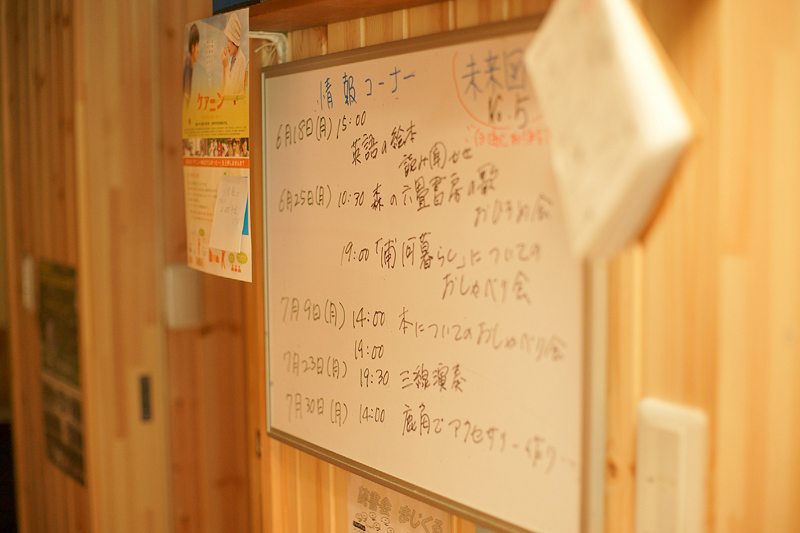 情報コーナー
未来図
6月18日(月) 15:00
英語の絵本
読み聞かせ
6月25日(月) 10:30 森の六畳書房の歌
おひろめ会
19:00 「浦河暮らし」についての
おしゃべり会
7月9日(月) 14:00 本についてのおしゃべり会
19:00
7月23日(月) 19:30 三線演奏
7月30日(月) 14:00 鹿角でアクセサリー作り
ケアニン
読書会 まじくる